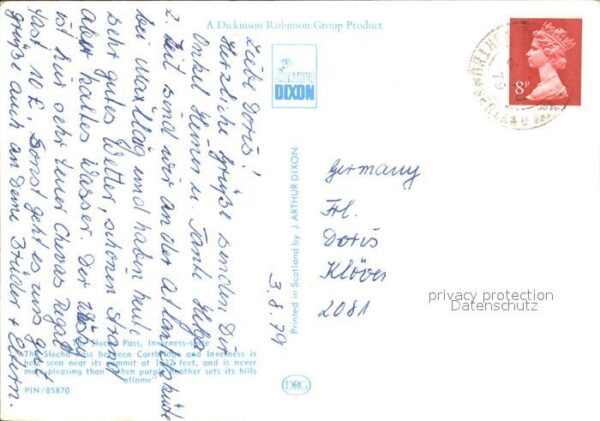 A Dickinson Robinson Group Product
J. ARTHUR DIXON
8P
Liebe Doris!
Herzliche Grüße senden Dir
Onkel Heinz u. Tante Helga
z. Zeit sind wir an der atlantikküste
bei und haben heute
sehr gutes Wetter, schönen Strand
aber kaltes Wasser. Der
ist hier sehr teuer Chevas Regal
fast 10 £. Sonst geht es uns gut
grüße auch an Deine Brüder + Eltern.
3.8.79
Printed in Scotland by J. ARTHUR DIXON
Germany
Frl.
Doris
Klöver
2081
privacy protection
Datenschutz
The Slochd Pass, Inverness-shire
The Slochd Pass between Carrbridge and Inverness is
here seen near its summit at 1327 feet, and is never
more pleasing than when purple heather sets its hills
"aflame"
PIN/85870
DRG